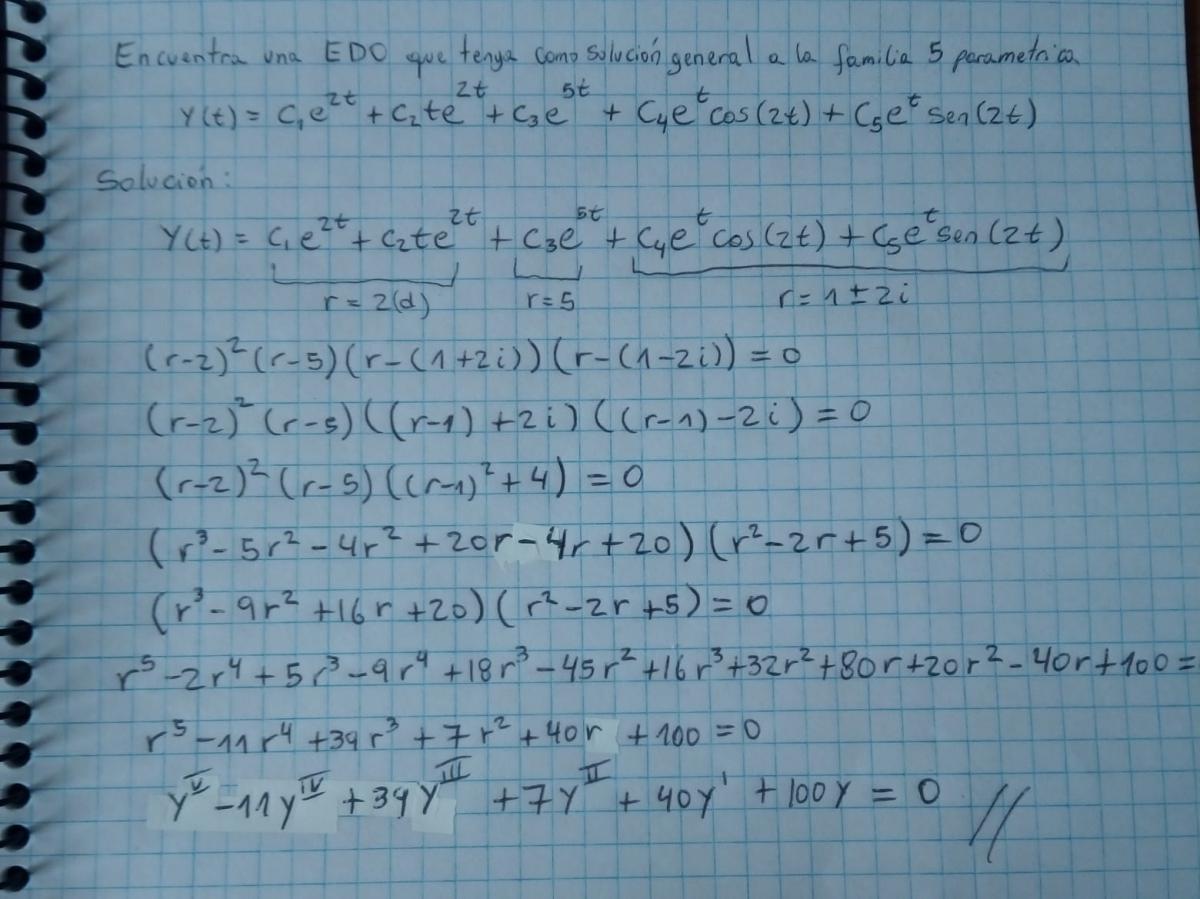 Encuentra una EDO que tenga como solución general a la familia 5 parametrica
Y(t) = C₁e^{2t} + C₂te^{2t} + C₃e^{5t} + C₄e^{t}cos(2t) + C₅e^{t}sen(2t)
Solución:
Y(t) = C₁e^{2t} + C₂te^{2t} + C₃e^{5t} + C₄e^{t}cos(2t) + C₅e^{t}sen(2t)
r = 2(d) r = 5 r = 1 ± 2i
(r-2)²(r-5)(r-(1+2i))(r-(1-2i)) = 0
(r-2)²(r-5)((r-1)+2i)((r-1)-2i) = 0
(r-2)²(r-5)((r-1)²+4) = 0
(r³ - 5r² - 4r² + 20r - 4r + 20)(r² - 2r + 5) = 0
(r³ - 9r² + 16r + 20)(r² - 2r + 5) = 0
r⁵ - 2r⁴ + 5r³ - 9r⁴ + 18r³ - 45r² + 16r³ + 32r² + 80r + 20r² - 40r + 100 =
r⁵ - 11r⁴ + 39r³ + 7r² + 40r + 100 = 0
y^{V} - 11y^{IV} + 39y^{III} + 7y^{II} + 40y' + 100y = 0 //